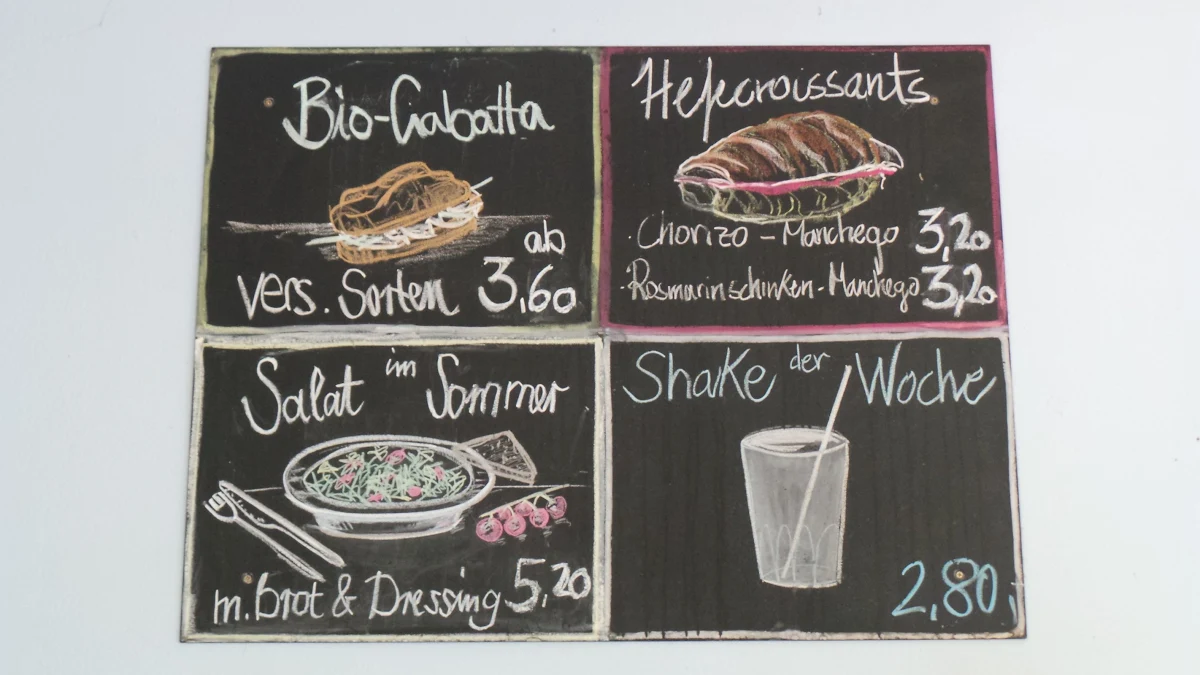 Bio-Ciabatta
ab
vers. Sorten 3,60
Hefecroissants
· Chorizo - Manchego 3,20
· Rosmarinschinken - Manchego 3,20
Salat im Sommer
m. Brot & Dressing 5,20
Shake der Woche
2,80